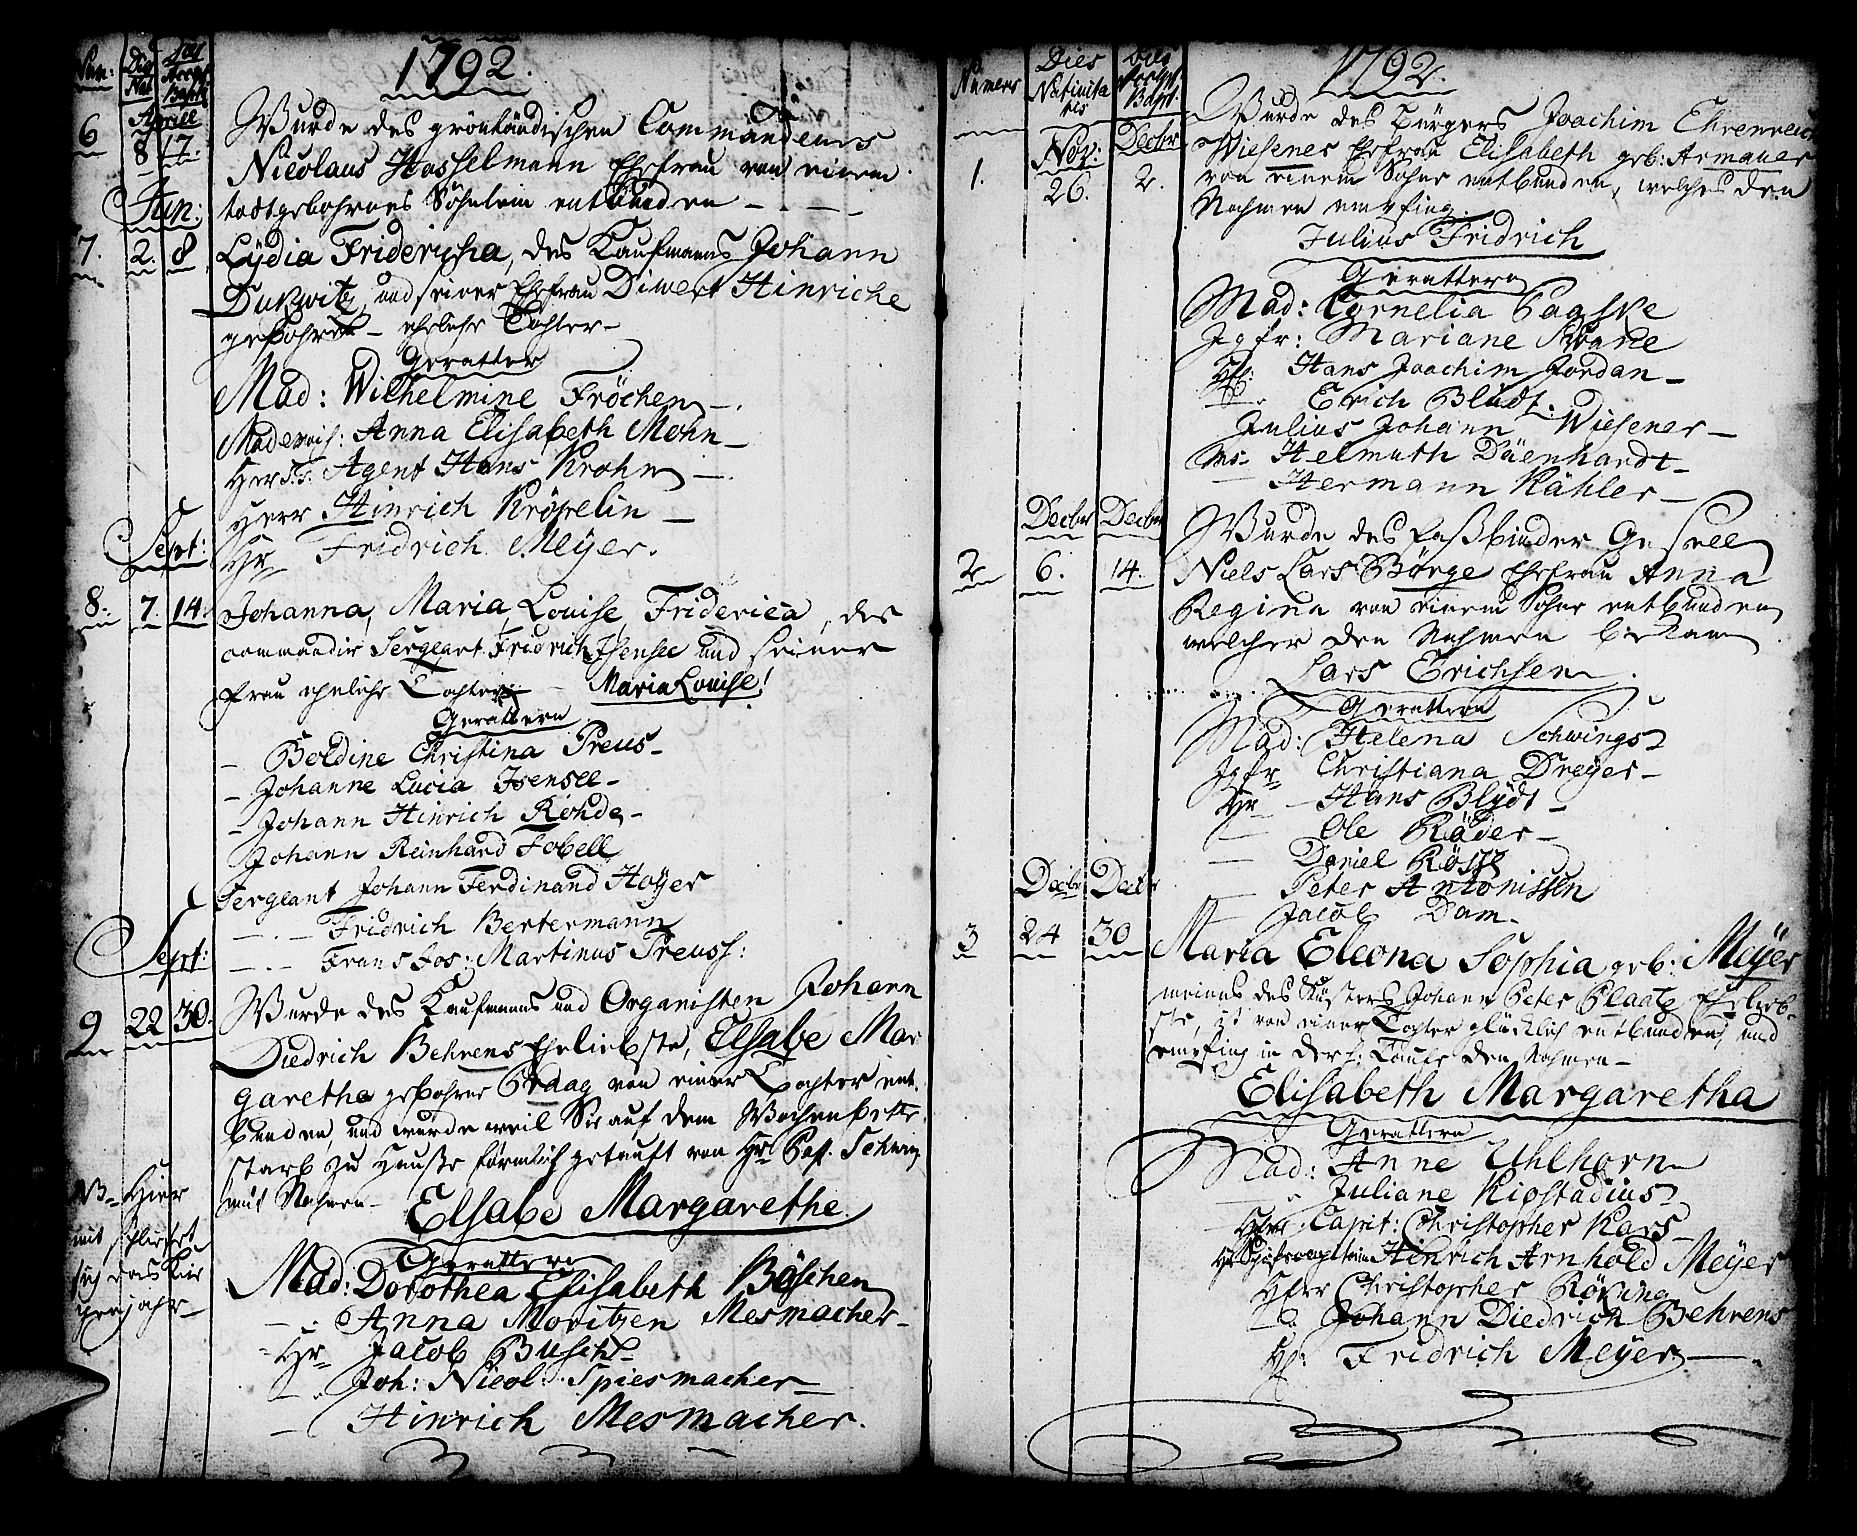 1792.
Num: Die Nat Die Acces Bapt
Aprill
6 8 17. Wurde des grönländischen Commandeurs
Nicolaus Hasselmann Ehefrau von einem
todtgebohrnes Söhnlein entbunden
Jun:
7. 2. 8 Lydia Fridericha, des Kaufmanns Johann
Dukwitz und seiner Ehefrau Diwert Hinriche
gebohrne ehelihe Tochter
Gevatter
Mad: Wilhelmine Fröchen
Anna Elisabeth Mohn
Herr S.T. Agent Hans Krohn
Herr Hinrich Kröpelin
Hr Fridrich Meÿer.
Sept:
8. 7. 14. Johanna, Maria, Louise, Friderica, des
commandir Sergeant Fridrich Isensee und seiner
Frau eheliche Tochter Maria Louise!
Gevattern
Boldine Christina Preus
Johanne Lucia Isensee
Johann Hinrich Rohde
Johann Reinhard Fobell
Sergeant Johann Ferdinand Hoÿer
Fridrich Bertermann
Frans Jos: Martinus Preuss:
Sept:
9 22 30. Wurde des Kaufmanns und Organisten Johann
Diedrich Behrens Eheliebste, Elsabe Mar
garetha gebohrne Praag von einer Tochter ent,
bunden, und wurde weil Sie auf dem Wochenbette
starb zu Hauße förmlich getauft von Hr Past. Schwing
mit Nahmen Elsabe Margarethe.
NB Hier
mit schliesst
sich das Kir
chenjahr
Gevattern
Mad: Dorothea Elisabeth Böschen
Anna Moritzen Mesmacher
Hr Jacob Busch
Joh: Nicol: Spiesmacher
Hinrich Mesmacher.
1792.
Numers Dies Nativita tis Dies Bapt
Nov: Decbr
1. 26. 2. Wurde des Bürgers Joachim Ehrenreich
Wiesener Ehefrau Elisabeth geb: Armauer
von einem Sohne entbunden, welches den
Nahmen empfing.
Julius Fridrich
Gevattern
Mad: Cornelia Paaske
Jgfr: Mariane
Hr: Hans Joachim Jordan
Erich Blüdt.
Julius Johann Wiesener
Helmuth Däenhardt
Hermann Kähler
Decbr Decbr
2 6. 14. Wurde des Faßbinder Gesell
Niels Lars Börge Ehefrau Anna
Regina von einem Sohne entbunden
welcher den Nahmen bekam
Lars Erichsen.
Gevattern
Mad: Helena Schwings
Jgfr Christiana Dreÿer
Hr Hans Blÿdt
Ole Räder
Daniel
Peter Antonissen
Jacob Dam
Decbr Decbr
3 24 30 Maria Eleona Sophia geb: Meÿer
meines des Küsters Johann Peter Plaatz Ehelieb
ste, ist von einer Tochter glücklich entbunden, und
empfing in der h: Taufe den Nahmen
Elisabeth Margaretha
Gevattern
Mad: Anne Uhlhorn
Juliane Kipstadius
Herr Capit: Christopher Kars
Hr Schifscapitain Hinrich Arnhold Meÿer
Herr Christopher Röving
Johann Diedrich Behrens
Hr: Fridrich Meÿer